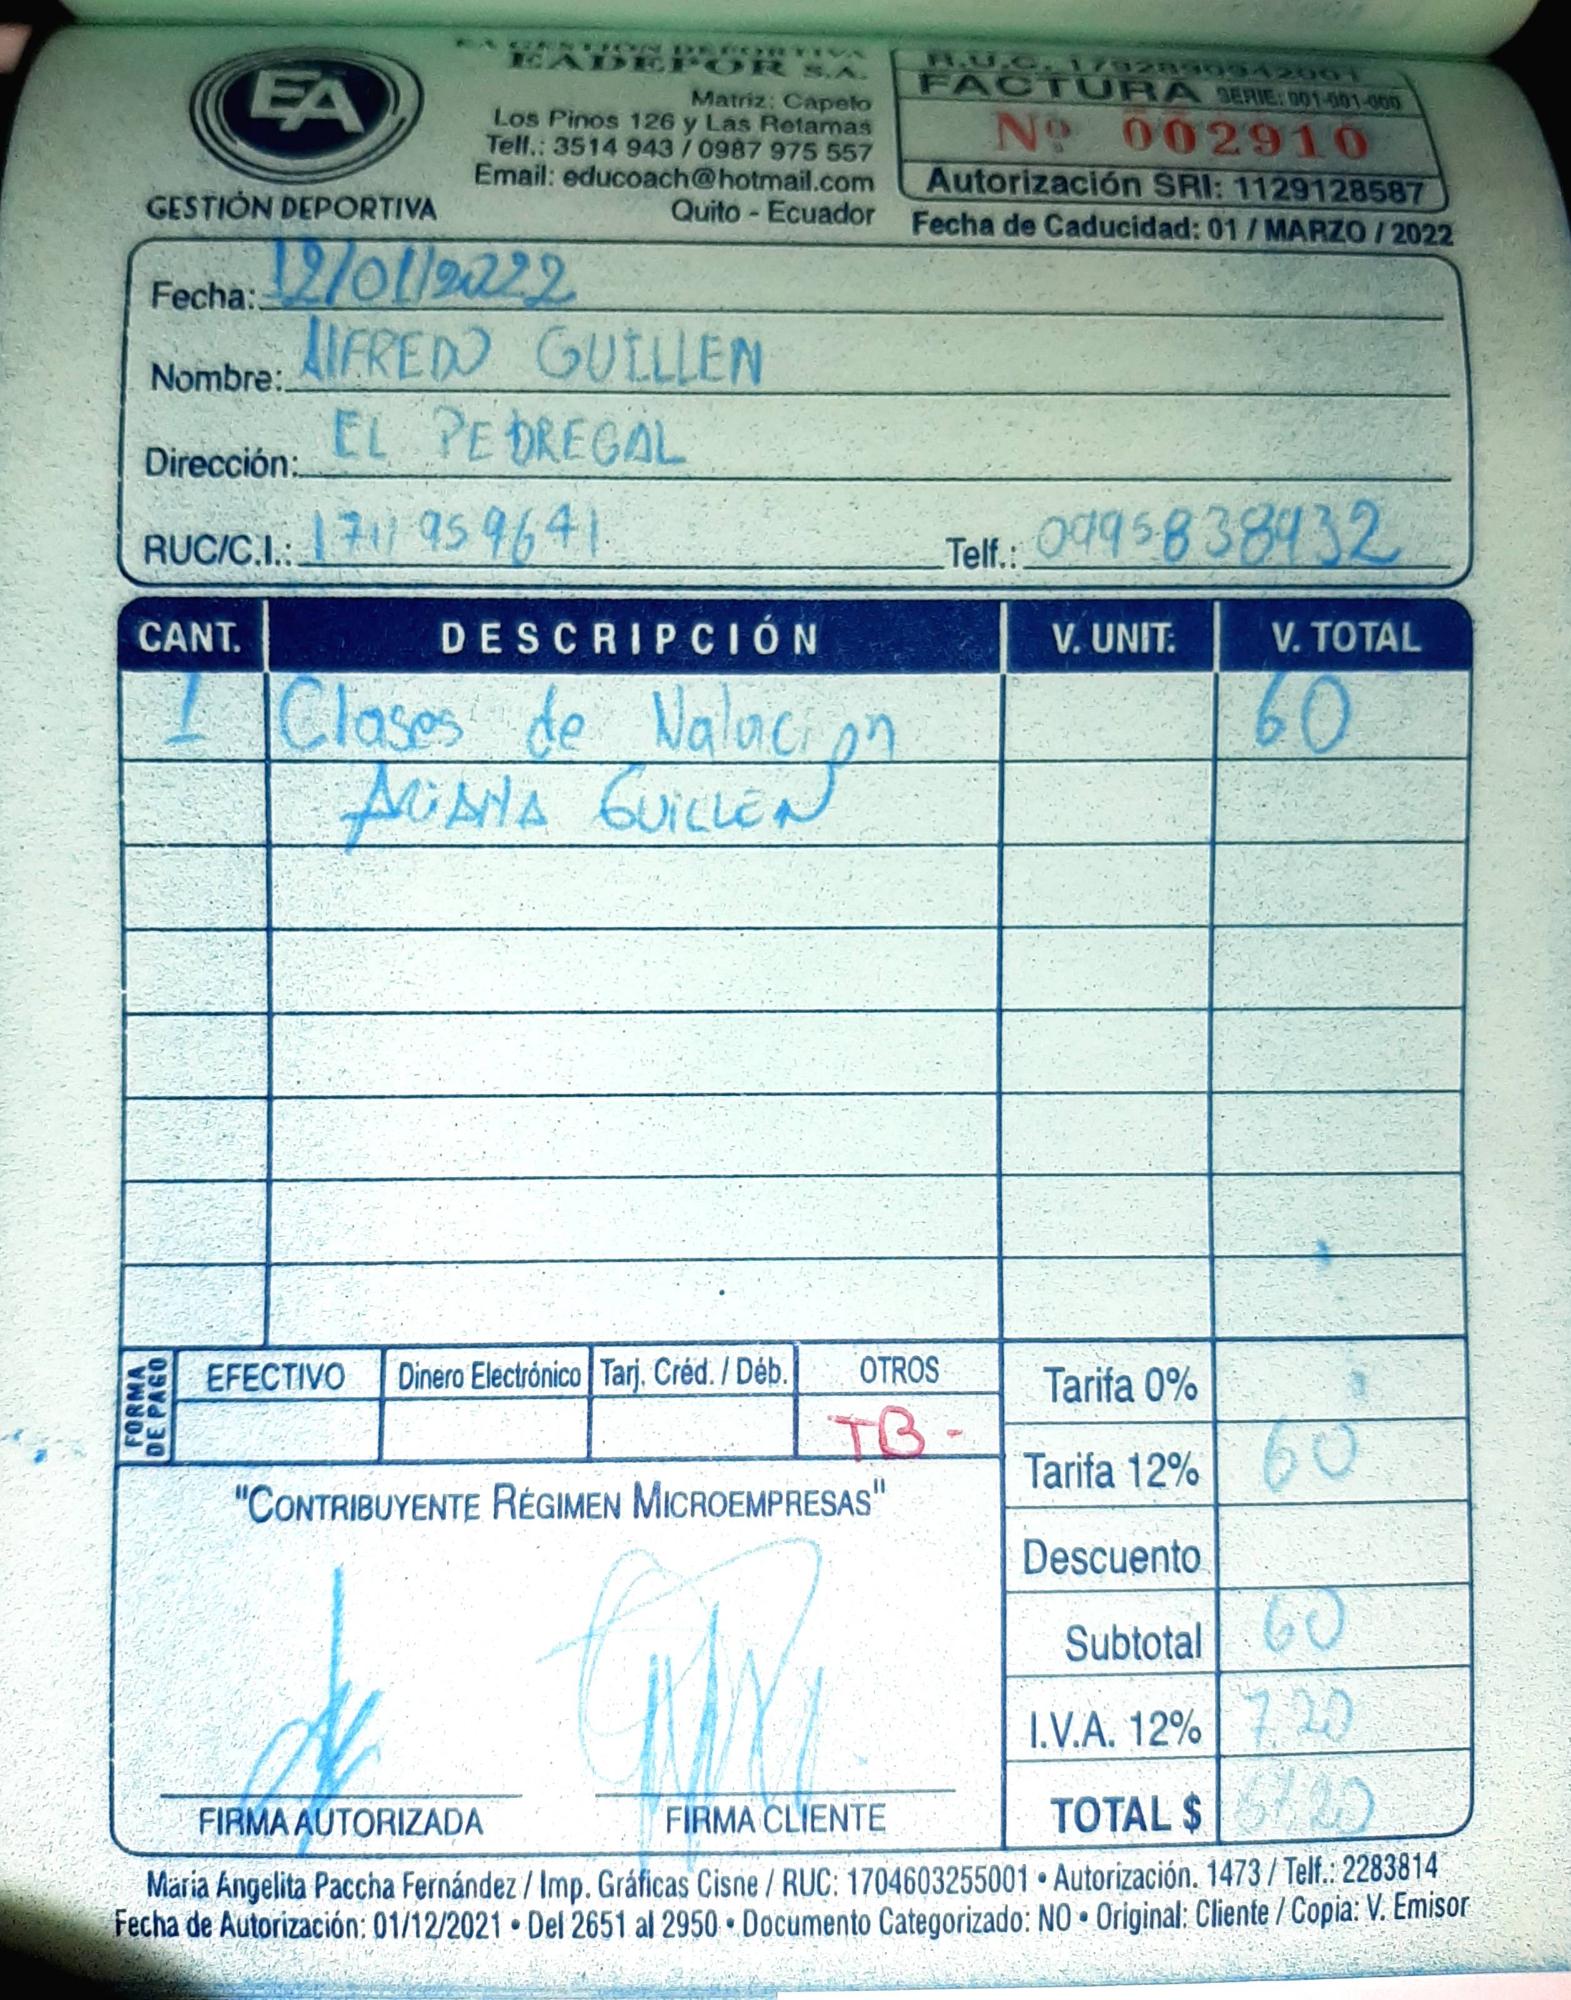 EA
GESTIÓN DEPORTIVA
EA GESTION DEPORTIVA
EADEPOR S.A.
Matriz: Capelo
Los Pinos 126 y Las Retamas
Telf.: 3514 943 / 0987 975 557
Email: educoach@hotmail.com
Quito - Ecuador
R.U.C. 1792890942001
FACTURA SERIE: 001-001-000
Nº 002910
Autorización SRI: 1129128587
Fecha de Caducidad: 01 / MARZO / 2022
Fecha: 12/01/2022
Nombre: AlFREDO GUILLEN
Dirección: EL PEDREGAL
RUC/C.I.: 1711959641 Telf.: 0995838932
CANT. DESCRIPCIÓN V. UNIT. V. TOTAL
1 Clases de Natacion 60
ARiANA GUiLLEN
FORMA DE PAGO
EFECTIVO Dinero Electrónico Tarj. Créd. / Déb. OTROS
TB -
Tarifa 0%
Tarifa 12% 60
Descuento
Subtotal 60
I.V.A. 12% 7.20
TOTAL $ 67.20
"CONTRIBUYENTE RÉGIMEN MICROEMPRESAS"
FIRMA AUTORIZADA FIRMA CLIENTE
Maria Angelita Paccha Fernández / Imp. Gráficas Cisne / RUC: 1704603255001 • Autorización. 1473 / Telf.: 2283814
Fecha de Autorización: 01/12/2021 • Del 2651 al 2950 • Documento Categorizado: NO • Original: Cliente / Copia: V. Emisor